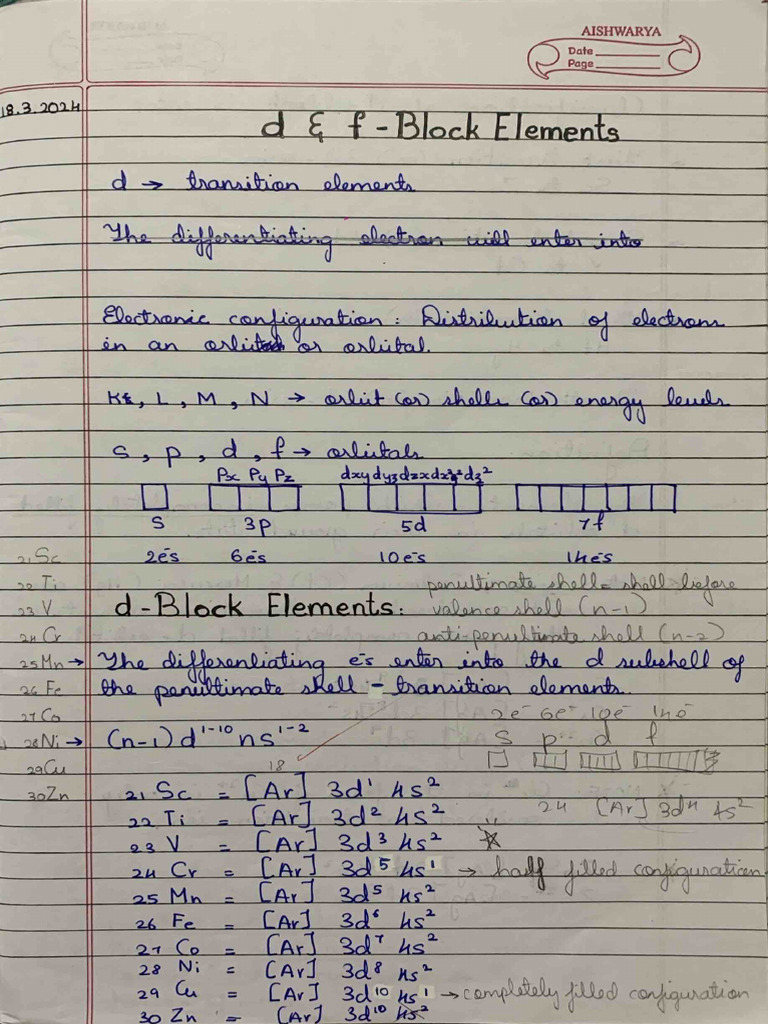 AISHWARYA
Date
Page
18.3.2024
d & f - Block Elements
d → transition elements
The differentiating electron will enter into
Electronic configuration : Distribution of electrons
in an orbit or orbital.
K, L, M, N → orbit (or) shells (or) energy levels
s, p, d, f → orbitals
Px Py Pz dxy dyz dzx dx²y² dz²
S 3p 5d 7f
2e⁻s 6e⁻s 10e⁻s 14e⁻s
21Sc
22Ti penultimate shell = shell before
23V d-Block Elements: valence shell (n-1)
24Cr anti-penultimate shell (n-2)
25Mn → The differentiating e⁻s enter into the d subshell of
26Fe the penultimate shell - transition elements.
27Co 2e⁻ 6e⁻ 10e⁻ 14e⁻
28Ni → (n-1)d¹⁻¹⁰ ns¹⁻² S p d f
29Cu 18
30Zn 21 Sc = [Ar] 3d¹ 4s²
24 [Ar] 3d⁴ 4s²
22 Ti = [Ar] 3d² 4s²
23 V = [Ar] 3d³ 4s²
24 Cr = [Ar] 3d⁵ 4s¹ → half filled configuration
25 Mn = [Ar] 3d⁵ 4s²
26 Fe = [Ar] 3d⁶ 4s²
27 Co = [Ar] 3d⁷ 4s²
28 Ni = [Ar] 3d⁸ 4s²
29 Cu = [Ar] 3d¹⁰ 4s¹ → completely filled configuration
30 Zn = [Ar] 3d¹⁰ 4s²